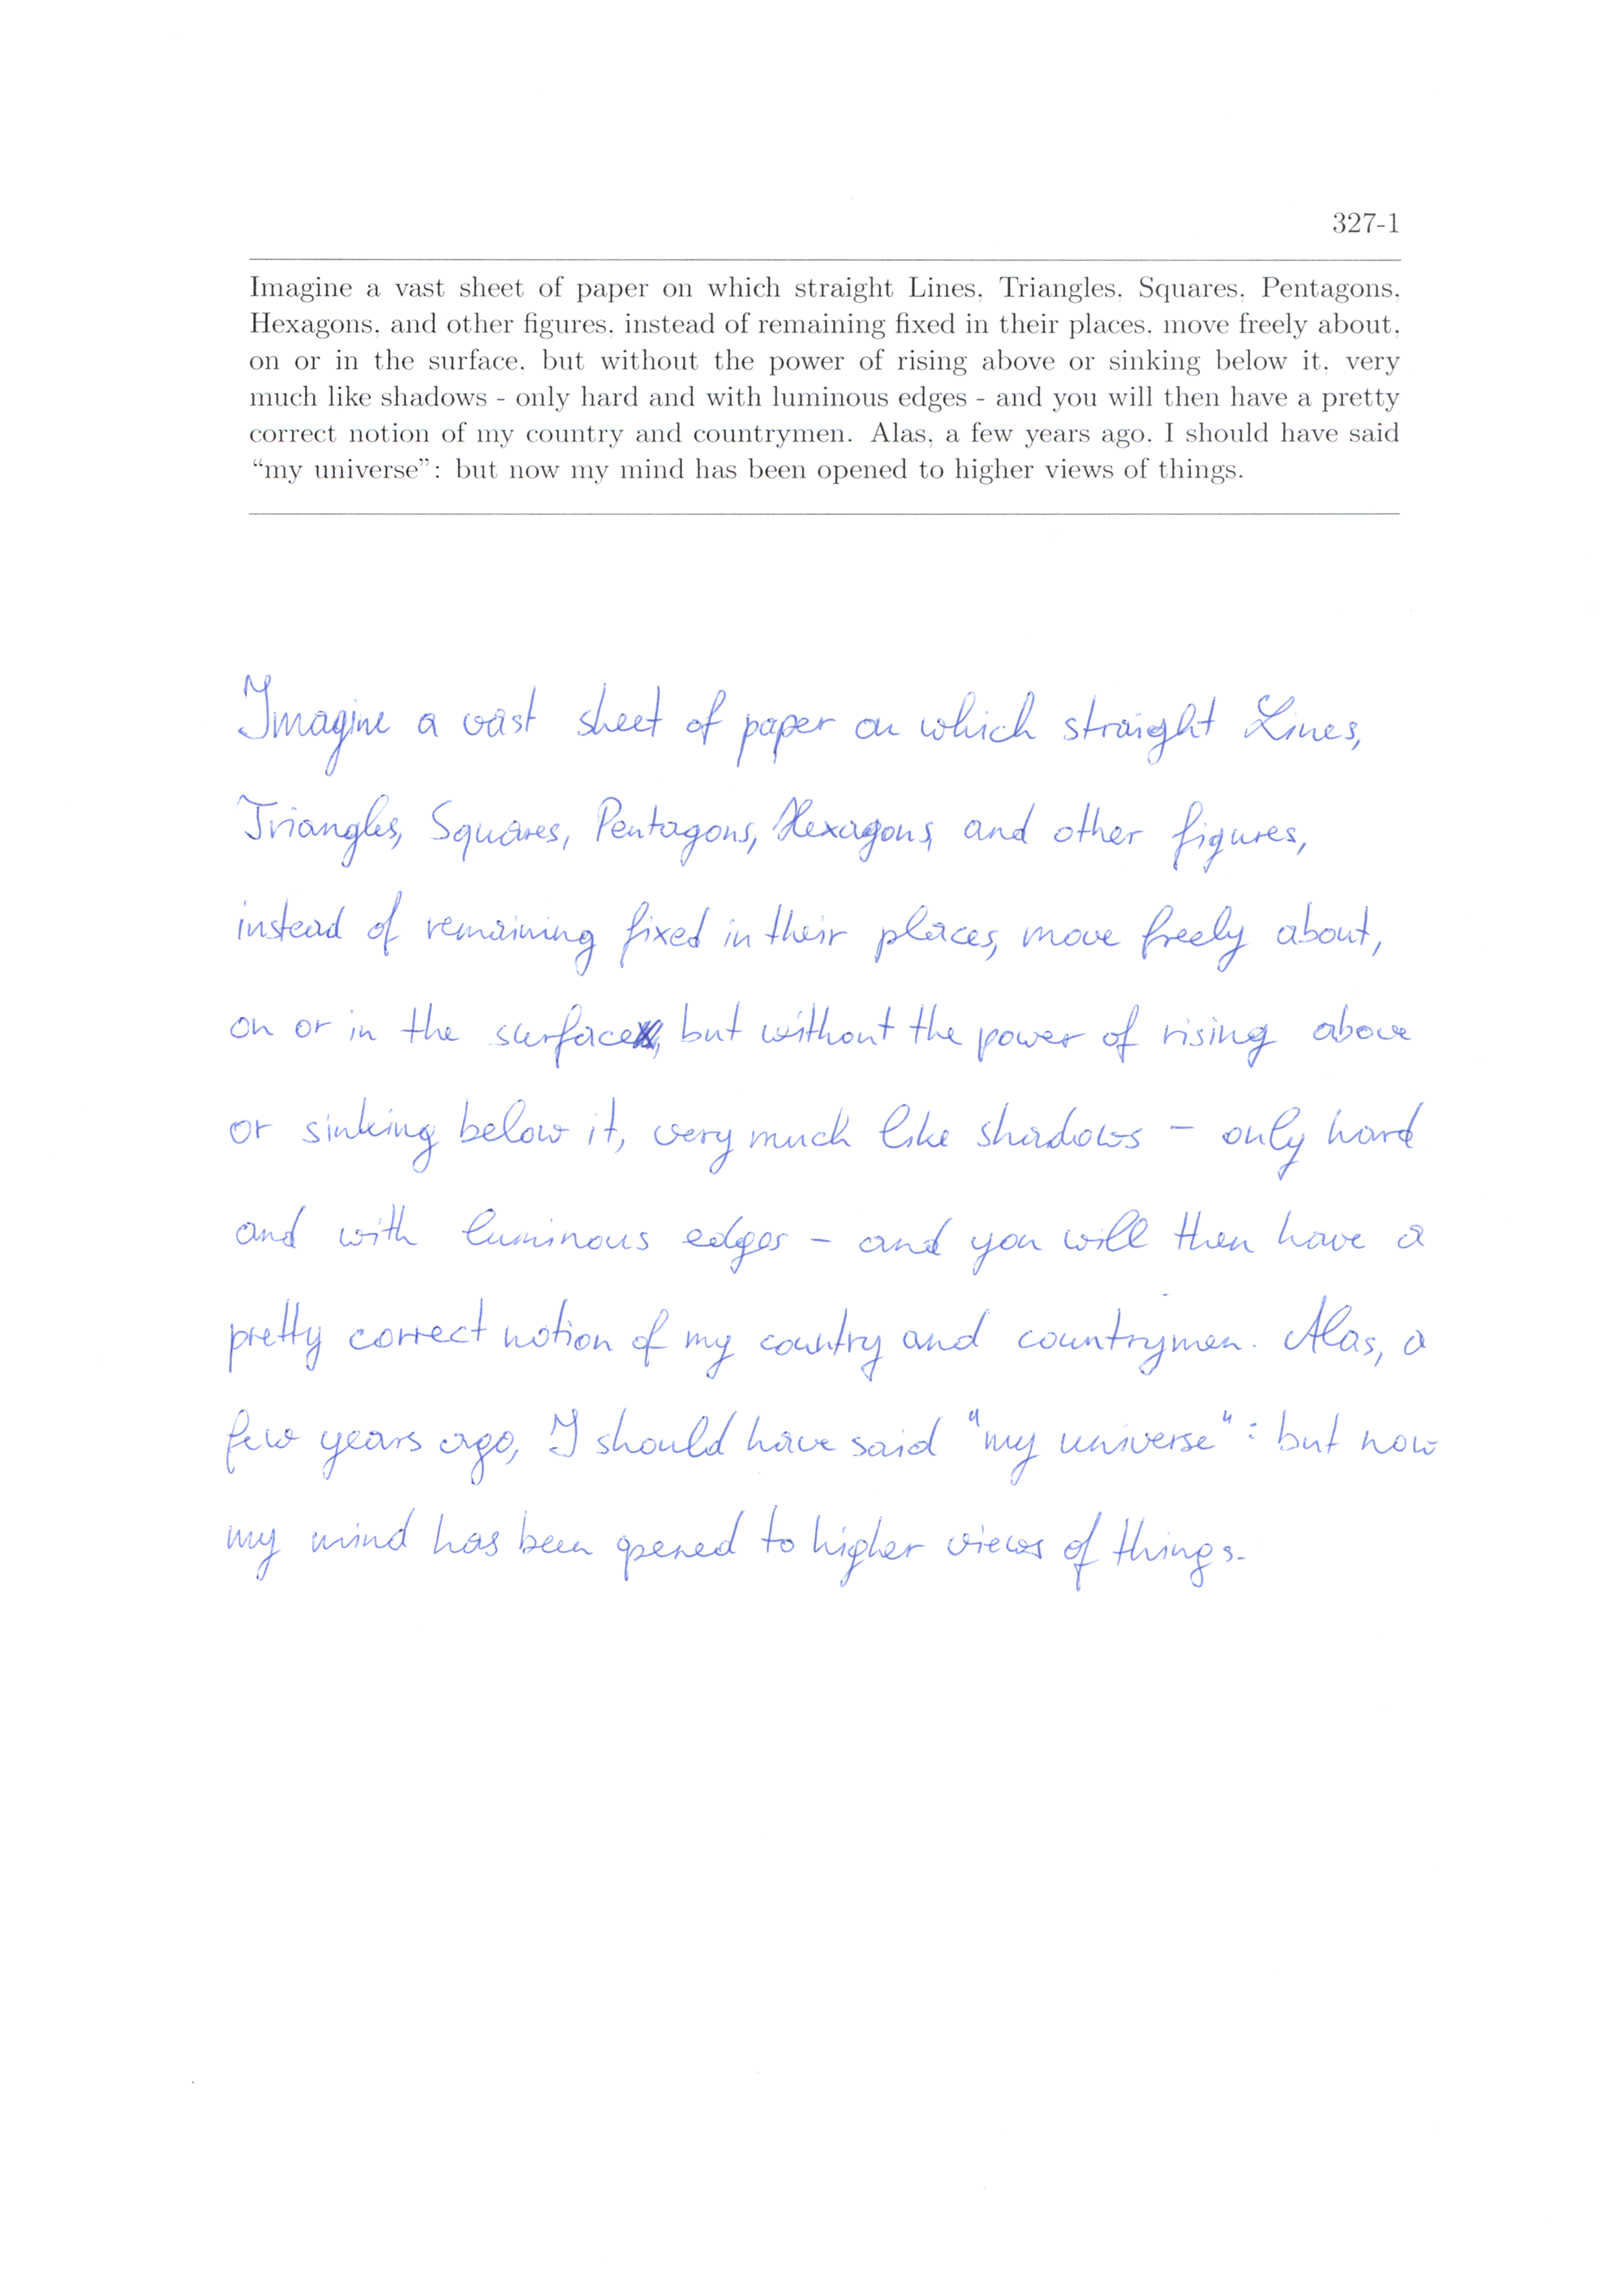 327-1
Imagine a vast sheet of paper on which straight Lines, Triangles, Squares, Pentagons,
Hexagons, and other figures, instead of remaining fixed in their places, move freely about,
on or in the surface, but without the power of rising above or sinking below it, very
much like shadows - only hard and with luminous edges - and you will then have a pretty
correct notion of my country and countrymen. Alas, a few years ago, I should have said
“my universe”: but now my mind has been opened to higher views of things.
Imagine a vast sheet of paper on which straight Lines,
Triangles, Squares, Pentagons, Hexagons, and other figures,
instead of remaining fixed in their places, move freely about,
on or in the surface, but without the power of rising above
or sinking below it, very much like shadows - only hard
and with luminous edges - and you will then have a
pretty correct notion of my country and countrymen. Alas, a
few years ago, I should have said "my universe": but now
my mind has been opened to higher views of things.